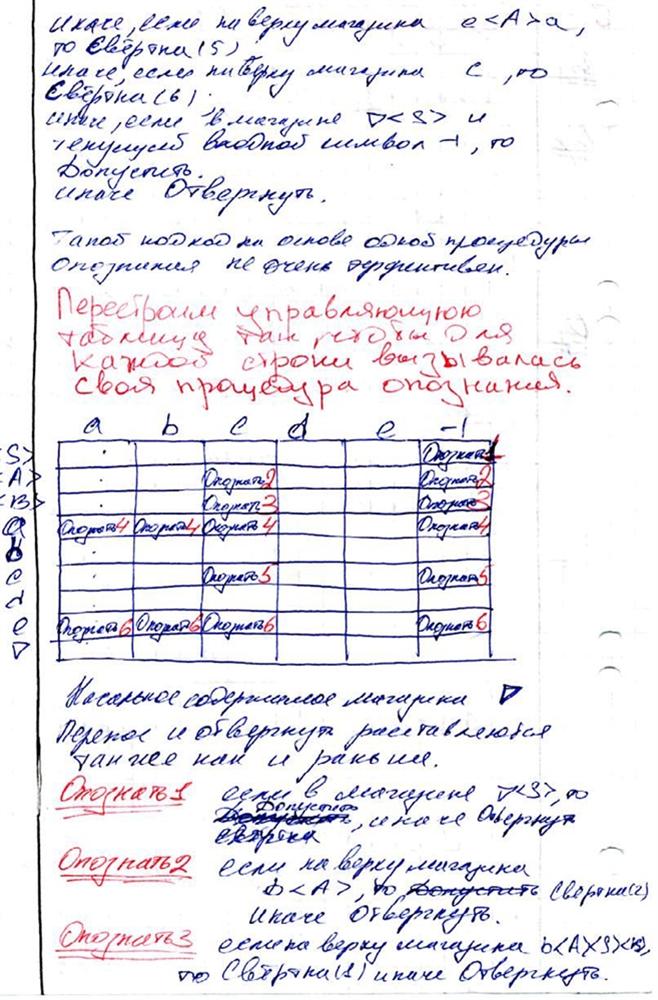 иначе, если наверху магазина e<A>a,
то Свёртка(5)
иначе, если наверху магазина c, то
Свёртка(6).
иначе, если в магазине ∇<S> и
текущий входной символ ⊣, то
Допустить.
иначе Отвергнуть.
Такой подход на основе одной процедуры
опознания не очень эффективен.
Перестроим управляющую
таблицу так, чтобы для
каждой строки вызывалась
своя процедура опознания.
a b c d e ⊣
<S> Опознать1
<A> Опознать2 Опознать2
<B> Опознать3 Опознать3
a Опознать4 Опознать4 Опознать4 Опознать4
b
c Опознать5 Опознать5
d
e Опознать6 Опознать6 Опознать6 Опознать6
∇
Начальное содержимое магазина ∇
Перенос и отвергнуть расставляются
так же как и раньше.
Опознать1 если в магазине ∇<S>, то
Допустить, иначе Отвергнуть
Опознать2 если наверху магазина
b<A>, то Свёртка(2)
иначе Отвергнуть.
Опознать3 если наверху магазина b<A><S><B>,
то Свёртка(1) иначе Отвергнуть.